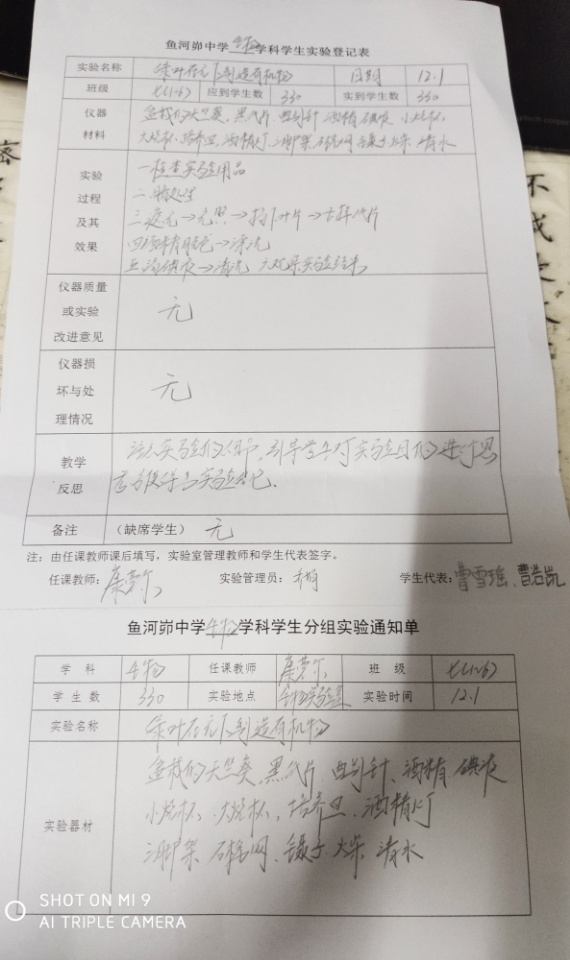 鱼河峁中学生物学科学生实验登记表
实验名称 绿叶在光下制造有机物 日期 12.1
班级 七(1~6) 应到学生数 330 实到学生数 330
仪器 盆栽的天竺葵、黑纸片、曲别针、酒精、碘液、小烧杯、
材料 大烧杯、培养皿、酒精灯、三脚架、石棉网、镊子、火柴、清水
实验 一.检查实验用品
过程 二.暗处理
及其 三.遮光→光照→摘下叶片→去掉纸片
效果 四.酒精脱色→漂洗
五.滴碘液→清洗 六.观察实验结果
仪器质量
或实验 无
改进意见
仪器损
坏与处 无
理情况
教学
反思
备注 (缺席学生) 无
注：由任课教师课后填写，实验室管理教师和学生代表签字。
任课教师： 实验管理员： 学生代表：曹雪瑶、曹若凯
鱼河峁中学生物学科学生分组实验通知单
学 科 生物 任课教师 班 级 七(1~6)
学 生 数 330 实验地点 生物实验室 实验时间 12.1
实验名称 绿叶在光下制造有机物
盆栽的天竺葵、黑纸片、曲别针、酒精、碘液
小烧杯、大烧杯、培养皿、酒精灯
实验器材 三脚架、石棉网、镊子、火柴、清水
SHOT ON MI 9
AI TRIPLE CAMERA